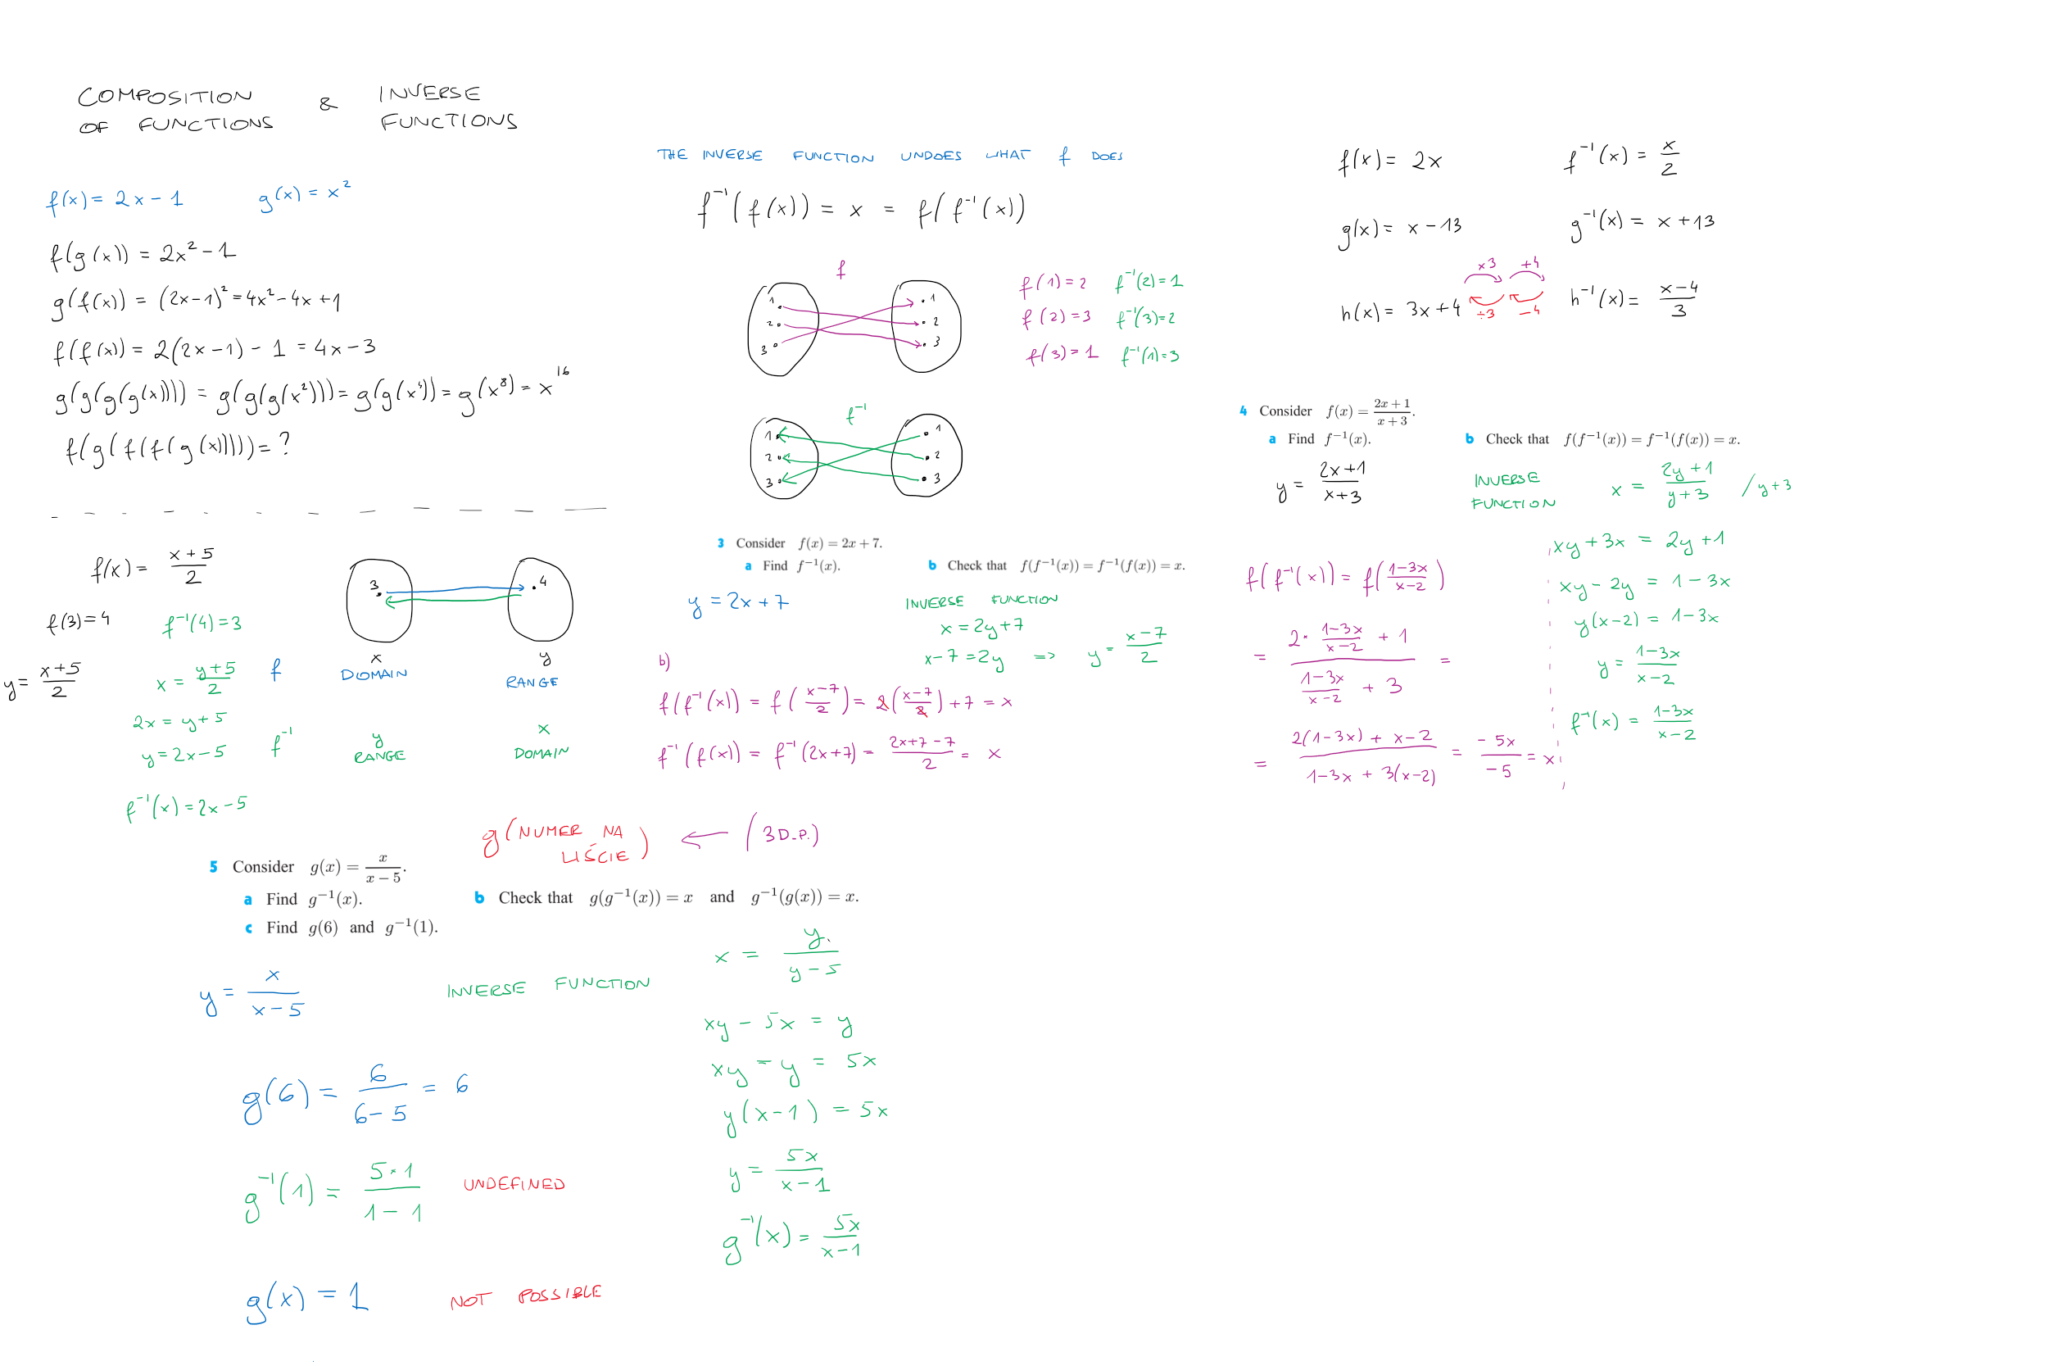 COMPOSITION OF FUNCTIONS & INVERSE FUNCTIONS
f(x) = 2x - 1    g(x) = x²
f(g(x)) = 2x² - 1
g(f(x)) = (2x-1)² = 4x² - 4x + 1
f(f(x)) = 2(2x-1) - 1 = 4x - 3
g(g(g(g(x)))) = g(g(g(x²))) = g(g(x⁴)) = g(x⁸) = x¹⁶
f(g(f(f(g(x))))) = ?
f(x) = (x+5)/2
f(3) = 4    f⁻¹(4) = 3
y = (x+5)/2
x = (y+5)/2    f
2x = y + 5
y = 2x - 5    f⁻¹
f⁻¹(x) = 2x - 5
3    4
x    y
DOMAIN    RANGE
y    x
RANGE    DOMAIN
THE INVERSE FUNCTION UNDOES WHAT f DOES
f⁻¹(f(x)) = x = f(f⁻¹(x))
f
1    1
2    2
3    3
f(1) = 2    f⁻¹(2) = 1
f(2) = 3    f⁻¹(3) = 2
f(3) = 1    f⁻¹(1) = 3
f⁻¹
1    1
2    2
3    3
3 Consider f(x) = 2x + 7.
a Find f⁻¹(x).    b Check that f(f⁻¹(x)) = f⁻¹(f(x)) = x.
y = 2x + 7    INVERSE FUNCTION
x = 2y + 7
x - 7 = 2y => y = (x-7)/2
b)
f(f⁻¹(x)) = f((x-7)/2) = 2((x-7)/2) + 7 = x
f⁻¹(f(x)) = f⁻¹(2x+7) = (2x+7-7)/2 = x
f(x) = 2x    f⁻¹(x) = x/2
g(x) = x - 13    g⁻¹(x) = x + 13
×3    +4
h(x) = 3x + 4    h⁻¹(x) = (x-4)/3
÷3    -4
4 Consider f(x) = (2x+1)/(x+3).
a Find f⁻¹(x).    b Check that f(f⁻¹(x)) = f⁻¹(f(x)) = x.
y = (2x+1)/(x+3)    INVERSE FUNCTION    x = (2y+1)/(y+3)    / y+3
xy + 3x = 2y + 1
xy - 2y = 1 - 3x
y(x-2) = 1 - 3x
y = (1-3x)/(x-2)
f⁻¹(x) = (1-3x)/(x-2)
f(f⁻¹(x)) = f((1-3x)/(x-2))
= (2·(1-3x)/(x-2) + 1)/((1-3x)/(x-2) + 3) =
= (2(1-3x) + x-2)/(1-3x + 3(x-2)) = -5x/-5 = x
g(NUMER NA LIŚCIE) ← (3 D.P.)
5 Consider g(x) = x/(x-5).
a Find g⁻¹(x).    b Check that g(g⁻¹(x)) = x and g⁻¹(g(x)) = x.
c Find g(6) and g⁻¹(1).
y = x/(x-5)    INVERSE FUNCTION    x = y/(y-5)
xy - 5x = y
xy - y = 5x
y(x-1) = 5x
y = 5x/(x-1)
g⁻¹(x) = 5x/(x-1)
g(6) = 6/(6-5) = 6
g⁻¹(1) = 5·1/(1-1)    UNDEFINED
g(x) = 1    NOT POSSIBLE